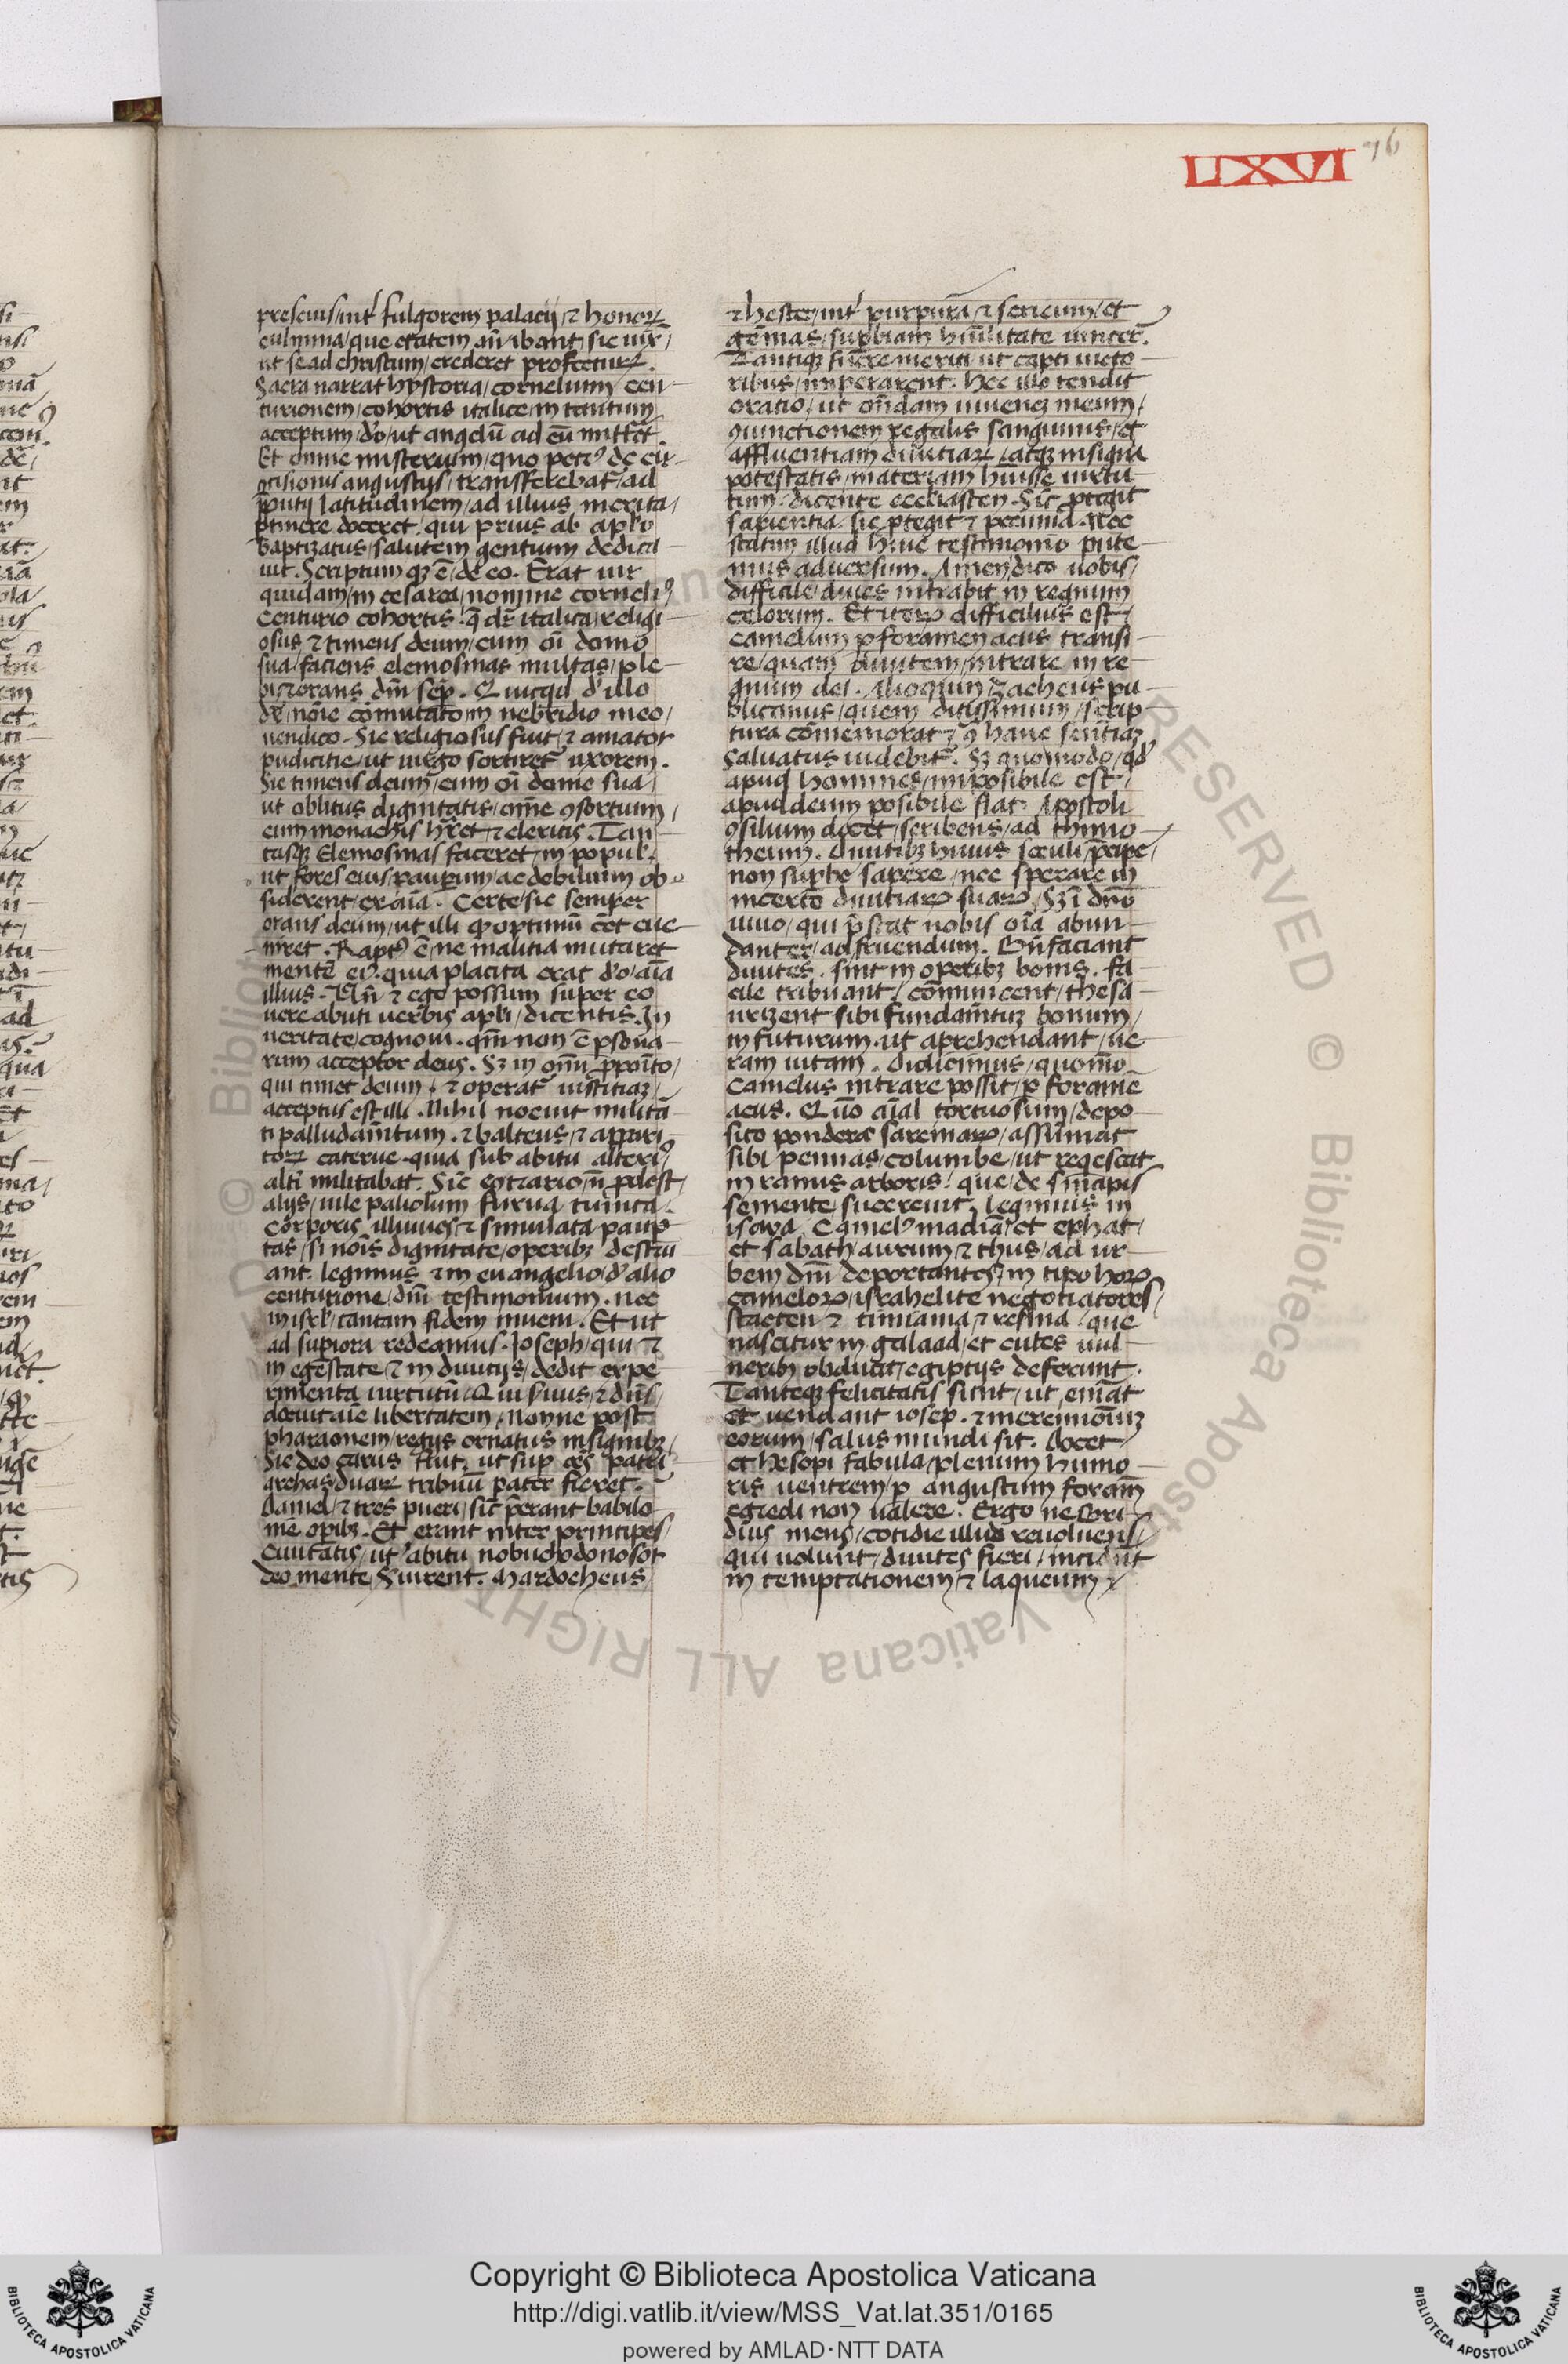 LXXVI
76
presens/int' fulgorem palacij/⁊ honoꝝ
culmina/que etatem an̄ibant/sic uix̄/
ut se ad christum/crederet profecturꝝ.
Sacra narrat hystoria/cornelium/cen
turionem/cohortis italice/in tantum
acceptum/d'o/ut angelū ad eū mittēt.
Et omne misterium/quo petrꝰ de cir
cūcisionis angustijs/transferebat/ad
p̄putij latitudinem/ad illius merita/
ptinere doceret/qui prius ab apl'o
baptizatus/salutem gentium dedica
uit. Scriptum qꝫ ē/de eo. Erat uir
quidam/in cesarea/nomine corneliꝰ
Centurio cohortis/q̄ dr̄ italica/religi
osus ⁊ timens deum/cum oī domo
sua/faciens elemosinas multas/ple
bi/⁊ orans dm̄ sep̄. Quicqd d' illo
dr̄/noīe cōmutato/in nebridio meo/
uendico. Sic religiosus fuit/⁊ amator
pudicitie/ut uirgo sortiret' uxorem.
Sic timens deum/cum oī domo sua/
ut oblitus dignitatis/om̄e ꝯsortium/
cum monachis hr̄et/⁊ clericis. Tan
tasqꝫ Elemosinas faceret/in popul'.
ut fores eius/paupum/ac debilium ob
siderent/exaīa. Certe/sic semper
orans deum/ut illi qd optimū eēt eue
niret. Raptꝰ ē/ne malitia mutaret
mentē eiꝰ. quia placita erat d'o/aīa
illius. Un̄ ⁊ ego possum super eo
uere abuti uerbis apl'i/dicentis. In
ueritate/cognoui. qm̄ non ē psona
rum acceptor deus. Sꝫ in om̄i p̄poīto/
qui timet deum/⁊ operat' iustitiaꝫ/
acceptus est illi. Nihil nocuit militā
ti palludam̄tum. ⁊ balteus/⁊ appari
toꝝ caterue. quia sub abitu alteriꝰ
alt'i militabat. Sic eōtrario/n̄ pdest/
alijs/uile paliolum furua tunica.
Corporis illuuies/⁊ simulata paup
tas/si nōis dignitate/operibꝫ destru
ant. legimus ⁊ in euangelio/d'alio
centurione/dn̄i testimonium. nec
in isrl'/tantam fidem inueni. Et ut
ad supiora redeamus. Joseph/qui ⁊
in egestate ⁊ in diuitijs/dedit expe
rimenta uirtutū/Qui s'uus/⁊ dn̄s/
docuit aīe libertatem/nonne post
pharaonem/regijs ornatus insignibꝫ/
Sic deo carus fuit/ut sup oēs patri
archas/duaꝝ tribuū pater fieret.
daniel/⁊ tres pueri/sic p̄erant babilo
nie opibꝫ. Et erant inter principes/
Ciuitatis/ut abitu nobuchodonosor
deo mente s'uirent. Mardocheus
⁊ hester/int' purpurā/⁊ sericum/et
gēmas/supbiam humilitate uincer̄.
Tantiqꝫ fuere meriti/ut capti uicto
ribus/imperarent. Hec illo tendit
oratio/ut on̄dam iuuenē meum/
ꝯiunctionem regalis sanguinis/et
affluentiam diuitiaꝝ/atqꝫ insignia
potestatis/materiam h'uisse uirtu
tum. dicente ecclesiasten. Sic ptegit
sapientia/sic ptegit ⁊ pecunia. Nec
statim illud huic testimonio pute
mus aduersum. Amen dico uobis/
difficile/diues intrabit in regnum
celorum. Et iteꝝ difficilius est/
camelum p foramen acus transi
re/quam diuitem/intrare in re
gnum dei. Alioquin zacheus pu
blicanus/quem ditissimum/scrip
tura cōmemorat/ꝯ hanc sentiāꝫ
saluatus uidebit'. Sꝫ quomodo/qd'
apud homines/imposibile est/
apud deum posibile fiat. Apostoli
ꝯsilium docet/scribens/ad thimo
theum. diuitibꝫ huius seculi p̄cipe/
non supbe sapere/nec sperare in
incerto diuitiaꝝ suaꝝ/Sꝫ ī dn̄o
uiuo/qui p̄stat nobis oīa abun
danter/ad fruendum. Bn̄faciant
diuites. sint in operibꝫ bonis. fa
cile tribuant/cōmunicent/thesa
urizent sibi fundam̄tuꝫ bonum/
in futurum. ut aprehendant/ue
ram uitam. didicimus/quom̄o
Camelus intrare possit/p foramē
acus. Quō aīal tortuosum/depo
sito pondere sarcinaꝝ/assumat
sibi pennas/columbe/ut reqescat
in ramis arboris/que/de sinapis
semente/succreuit. legimus in
isaya. Camelꝰ madiā/et ephat/
et sabath/aurum ⁊ thus/ad ur
bem dn̄i deportantes/in tipo hoꝝ
cameloꝝ/israhelite negotiatores/
stacten/⁊ timiama/⁊ resina/que
nascitur in galaad/et cutes uul
neribꝫ obducit/egiptijs deferunt.
Tanteqꝫ felicitatis sunt/ut emāt
et uendant iosep. ⁊ mercimoniuꝫ
eorum/salus mundi sit. docet
et hesopi fabula/plenum humo
ris uentrem/p angustum foram̄
egredi non ualere. Ergo nebri
dius meus/cotidie illud reuoluens/
qui uolunt/diuites fieri/incidūt
in temptationem/⁊ laqueum
Copyright © Biblioteca Apostolica Vaticana
http://digi.vatlib.it/view/MSS_Vat.lat.351/0165
powered by AMLAD·NTT DATA